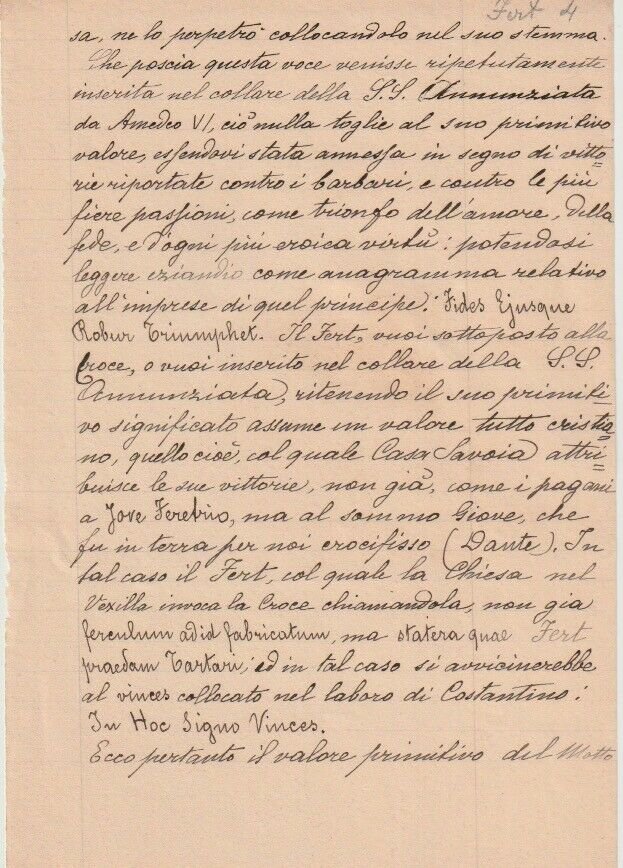 Fert 4
sa, ne lo perpetrò collocandolo nel suo stemma.
Che poscia questa voce venisse ripetutamente
inserita nel collare della S.S. Annunziata
da Amedeo VI, ciò nulla toglie al suo primitivo
valore, essendovi stata annessa in segno di vitto=
rie riportate contro i barbari, e contro le più
fiere passioni, come trionfo dell'amore, della
fede, e d'ogni più eroica virtù: potendosi
leggere eziandio come anagramma relativo
all'imprese di quel principe: Fides Ejusque
Robur Triumphet. Il Fert, vuoi sottoposto alla
Croce, o vuoi inserito nel collare della S.S.
Annunziata, ritenendo il suo primiti=
vo significato assume un valore tutto cristia=
no, quello cioè, col quale Casa Savoia attri=
buisce le sue vittorie, non già, come i pagani
a Jove Feretrio, ma al sommo Giove, che
fu in terra per noi crocifisso (Dante). In
tal caso il Fert, col quale la Chiesa nel
Vexilla invoca la Croce chiamandola, non già
ferculum ad id fabricatum, ma statera quae Fert
praedam Tartari, ed in tal caso si avvicinerebbe
al vinces collocato nel laboro di Costantino:
In Hoc Signo Vinces.
Ecco pertanto il valore primitivo del Motto